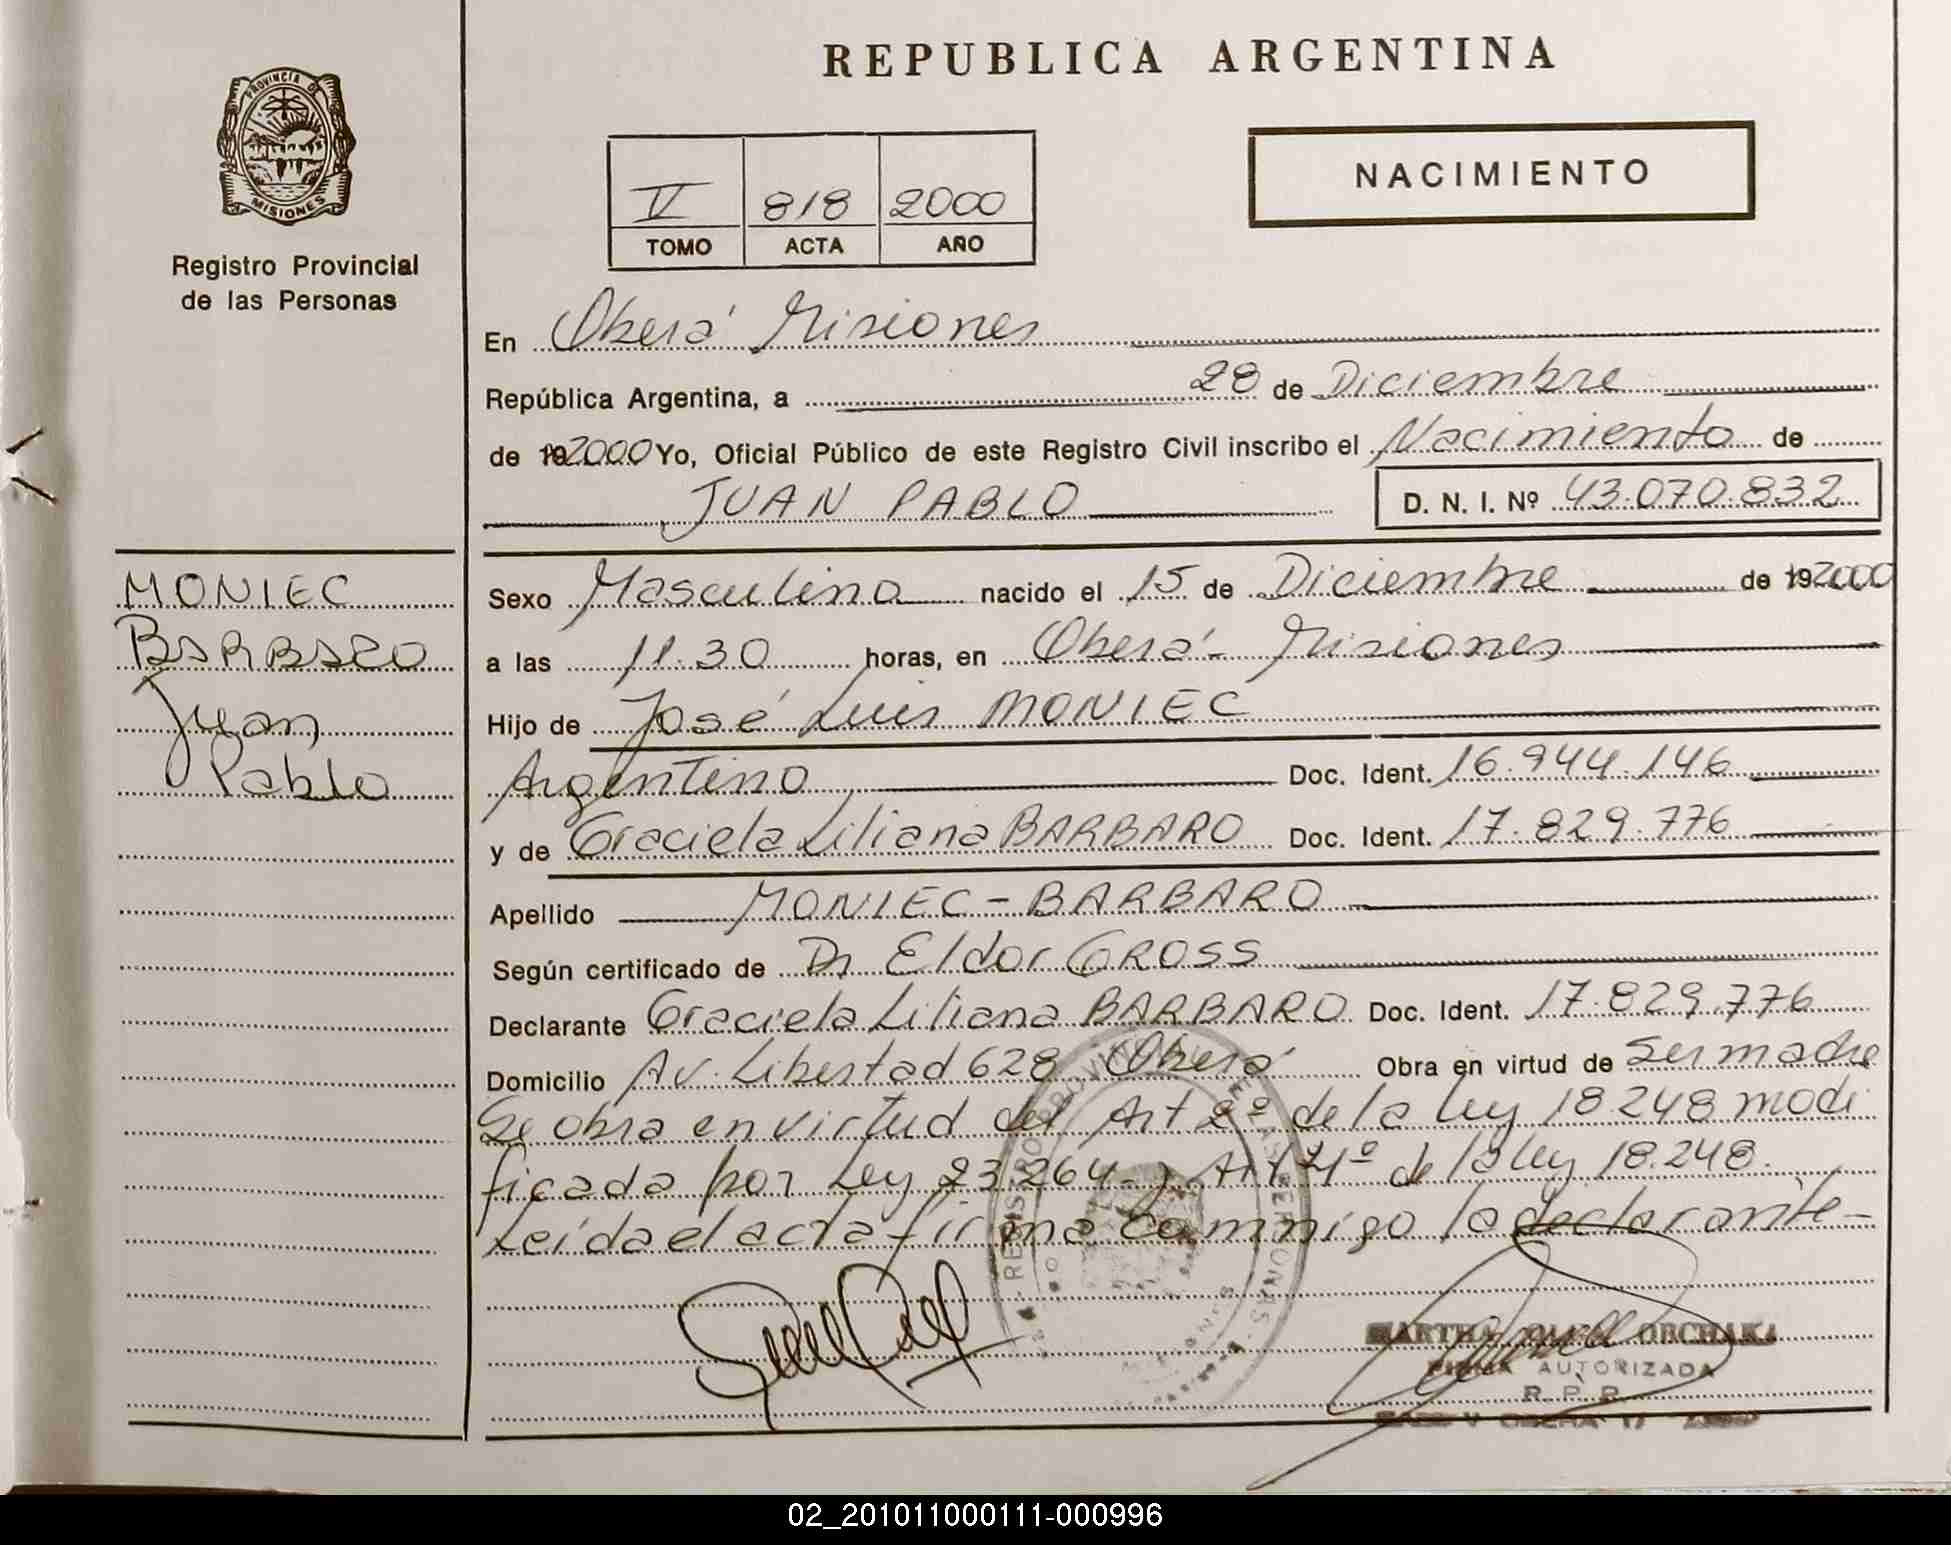 REPUBLICA ARGENTINA
PROVINCIA DE
MISIONES
Registro Provincial
de las Personas
V 818 2000
TOMO ACTA AÑO
NACIMIENTO
En Oberá Misiones
República Argentina, a 28 de Diciembre
de 192000 Yo, Oficial Público de este Registro Civil inscribo el Nacimiento de
JUAN PABLO D. N. I. Nº 43.070.832
MONIEC
BARBARO
Juan
Pablo
Sexo Masculino nacido el 15 de Diciembre de 192000
a las 11.30 horas, en Oberá - Misiones
Hijo de José Luis MONIEC
Argentino Doc. Ident. 16.944.146
y de Graciela Liliana BARBARO Doc. Ident. 17.829.776
Apellido MONIEC - BARBARO
Según certificado de Dr Eldor GROSS
Declarante Graciela Liliana BARBARO Doc. Ident. 17.829.776
Domicilio Av. Libertad 628 Oberá Obra en virtud de ser madre
Se obra en virtud del Art 2º de la Ley 18.248 modi
ficada por Ley 23.264 y Art 4º de la Ley 18.248.
Leída el acta firma conmigo la declarante -
REGISTRO PROVINCIAL DE LAS PERSONAS
MISIONES
MARTHA OBCHAKI
FIRMA AUTORIZADA
R. P. P.
02_201011000111-000996